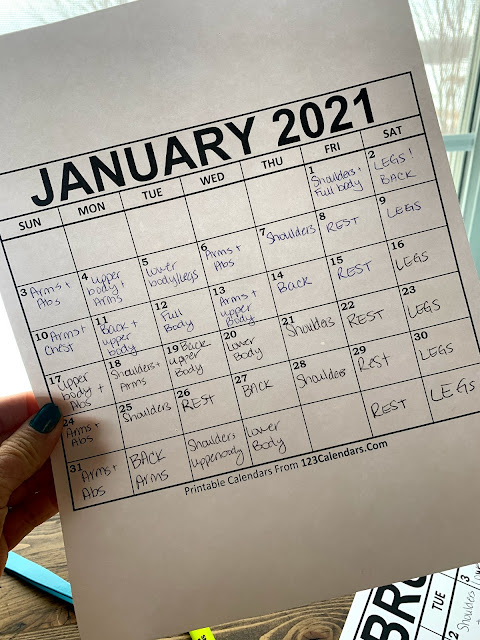 JANUARY 2021
SUN MON TUE WED THU FRI SAT
1
Shoulders +
Full body
2
LEGS!
BACK
3 Arms +
Abs
4 upper
body +
Arms
5 lower
body/legs
6
Arms +
Abs
7 Shoulders
8
REST
9
LEGS
10 Arms +
Chest
11
Back +
upper
body
12
Full
Body
13
Arms +
upper
Body
14
BACK
15
REST
16
LEGS
17
upper
body +
Abs
18
Shoulders +
Arms
19 Back
upper
Body
20
Lower
Body
21
Shoulders
22
REST
23
LEGS
24
Arms +
Abs
25
Shoulders
26
REST
27
BACK
28
Shoulders
29
Rest
30
LEGS
31
Arms +
Abs
BACK
Arms
Shoulders
upperbody
lower
Body
REST
LEGS
Printable Calendars From 123Calendars.Com
BRU
TUE
2
3
Shoulders